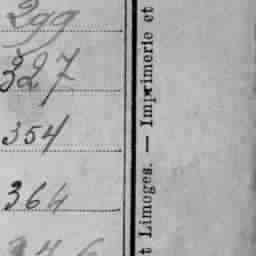 299
327
354
364
t Limoges. — Imprimerie et